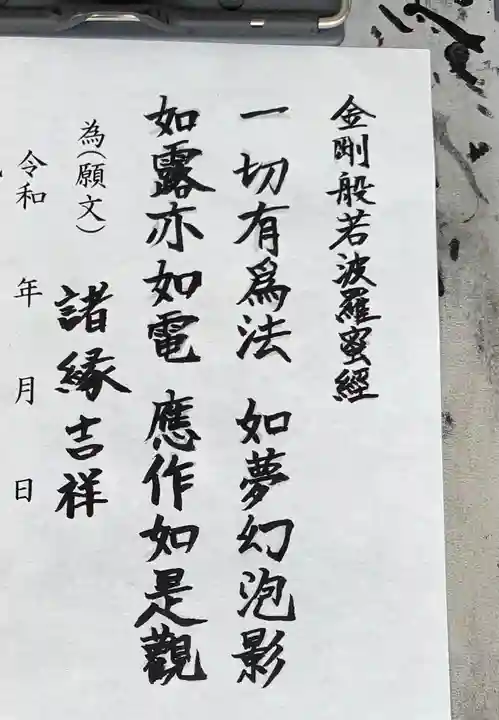 金剛般若波羅蜜經
一切有爲法 如夢幻泡影
如露亦如電 應作如是觀
為(願文) 諸縁吉祥
令和 年 月 日